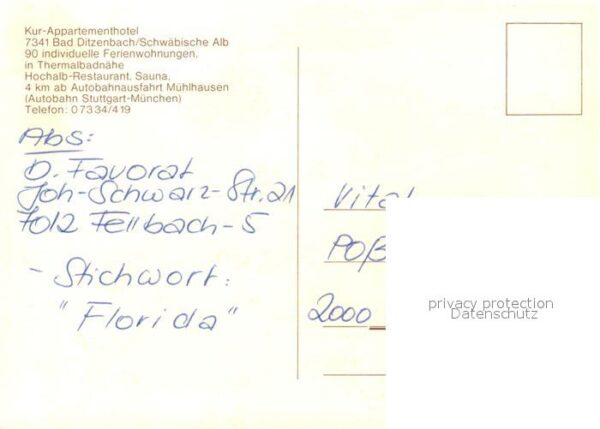 Kur-Appartementhotel
7341 Bad Ditzenbach/Schwäbische Alb
90 individuelle Ferienwohnungen,
in Thermalbadnähe
Hochalb-Restaurant, Sauna,
4 km ab Autobahnausfahrt Mühlhausen
(Autobahn Stuttgart-München)
Telefon: 07334/419
Abs:
D. Favorat
Joh-Schwarz-Str. 21
7012 Fellbach-5
- Stichwort:
"Florida"
2000
privacy protection
Datenschutz